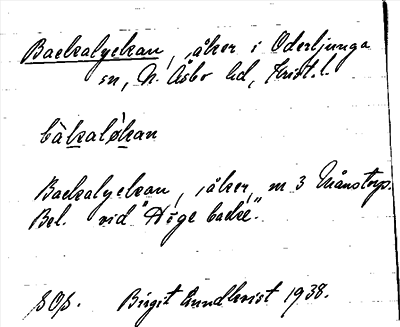 Backalyckan, åker i Oderljunga
sn, N. Åsbo hd, Krist. l.
bàkaløkan
Backalyckan, åker, m 3 Månstorp.
Bel. vid "Höge backe".
SOS. Birgit Sundkvist 1938.